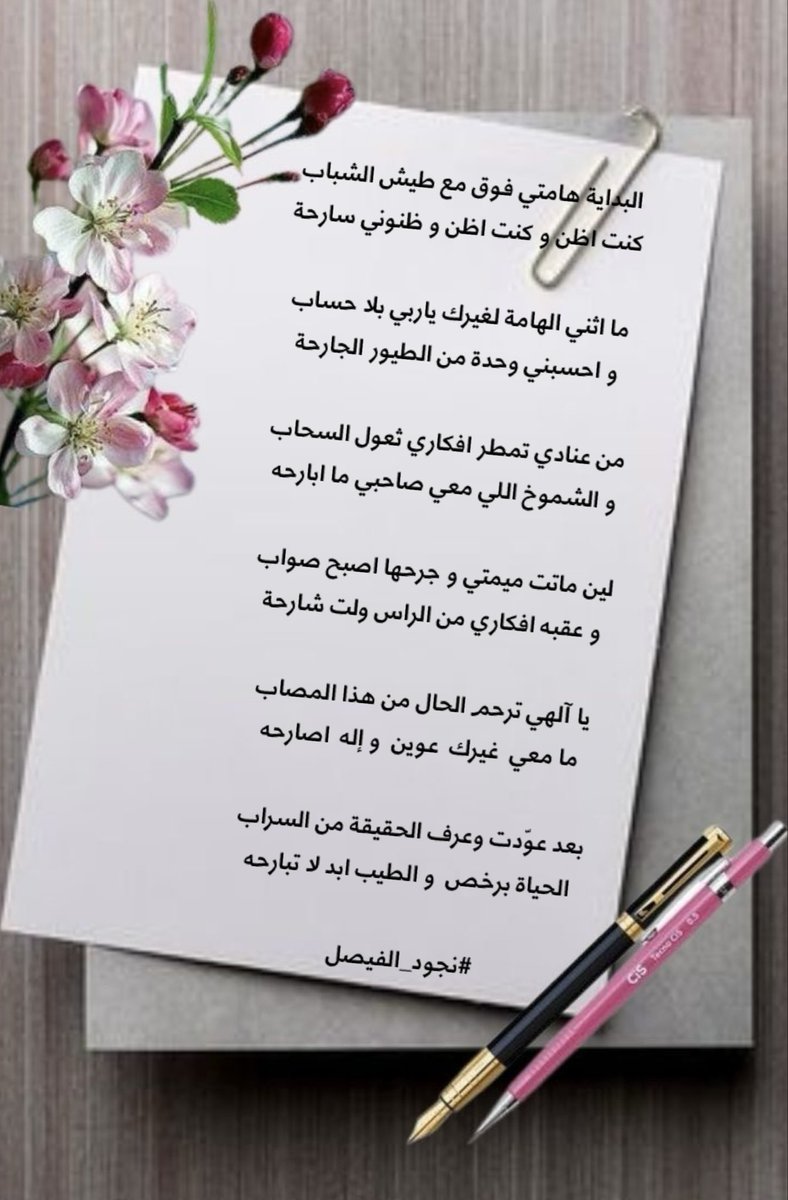 البداية هامتي فوق مع طيش الشباب
كنت اظن و كنت اظن و ظنوني سارحة
ما اثني الهامة لغيرك ياربي بلا حساب
و احسبني وحدة من الطيور الجارحة
من عنادي تمطر افكاري ثعول السحاب
و الشموخ اللي معي صاحبي ما ابارحه
لين ماتت ميمتي و جرحها اصبح صواب
و عقبه افكاري من الراس ولت شارحة
يا آلهي ترحم الحال من هذا المصاب
ما معي غيرك عوين و إله اصارحه
بعد عوّدت وعرف الحقيقة من السراب
الحياة برخص و الطيب ابد لا تبارحه
#نجود_الفيصل
CiS Tecno CiS 0.5